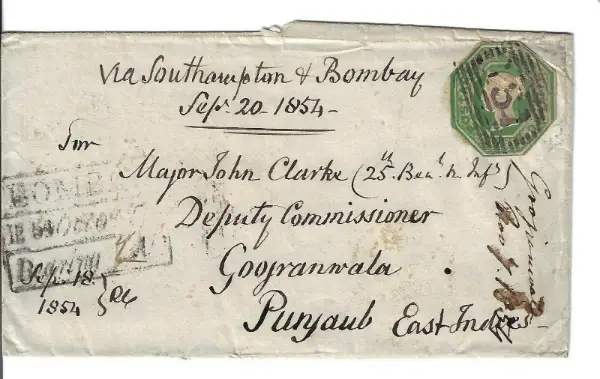 via Southampton & Bombay
Sep. 20. 1854-
For
Major John Clarke (25th Ben. N. Inf.)
Deputy Commissioner
Googranwala
Punjaub East Indies-
BOMBA
Sep. 18.
1854